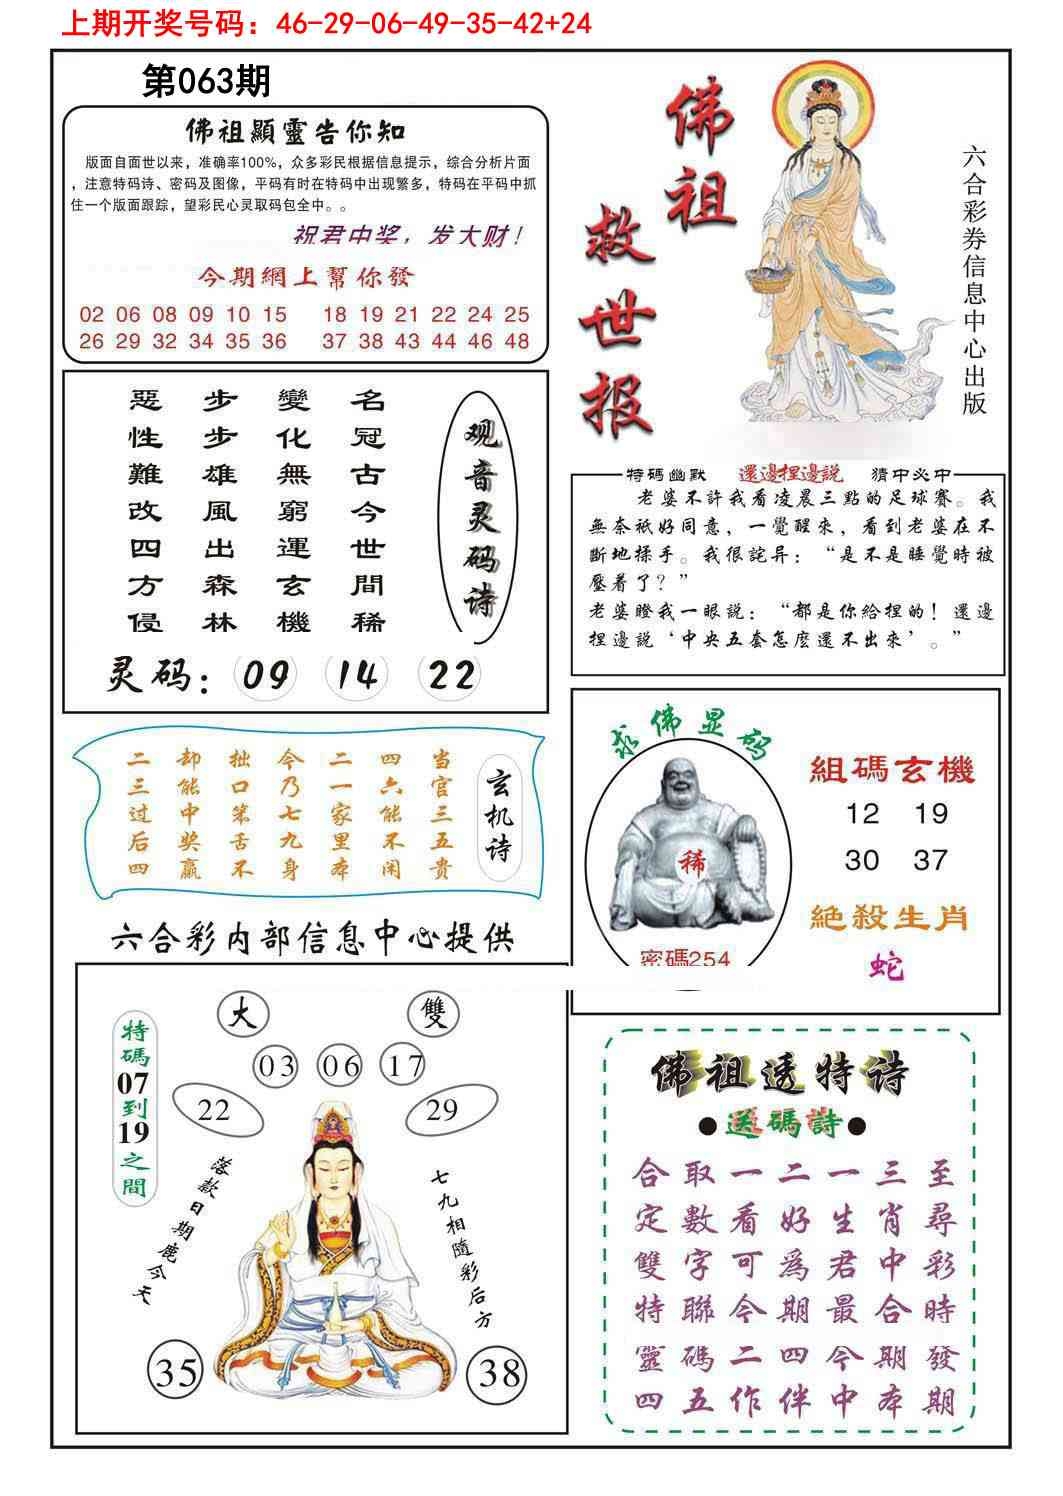 上期开奖号码：46-29-06-49-35-42+24
第063期
佛祖顯靈告你知
版面自面世以来，准确率100%，众多彩民根据信息提示，综合分析片面
，注意特码诗、密码及图像，平码有时在特码中出现繁多，特码在平码中抓
住一个版面跟踪，望彩民心灵取码包全中。。
祝君中奖，发大财！
今期網上幫你發
02 06 08 09 10 15 18 19 21 22 24 25
26 29 32 34 35 36 37 38 43 44 46 48
佛祖
救世报
六合彩券信息中心出版
观音灵码诗
名冠古今世間稀
變化無窮運玄機
步步雄風出森林
惡性難改四方侵
灵码：09 14 22
特碼幽默 還邊捏邊説 猜中必中
老婆不許我看凌晨三點的足球賽。我
無奈衹好同意，一覺醒來，看到老婆在不
斷地揉手。我很詫异：“是不是睡覺時被
壓着了？”
老婆瞪我一眼説：“都是你給捏的！還邊
捏邊説‘中央五套怎麽還不出來’。”
玄机诗
当官三五贵
四六能不闲
二一家里本
今乃七九身
拙口笨舌不
却能中奖赢
二三过后四
求佛显码
稀
密碼254
組碼玄機
12 19
30 37
絶殺生肖
蛇
六合彩内部信息中心提供
大 雙
03 06 17
22 29
特碼07到19之間
落款日期鹿今天
七九相隨彩后方
35 38
佛祖透特诗
●送碼詩●
合取一二一三至
定數看好生肖尋
雙字可為君中彩
特聯今期最合時
靈碼二四今期發
四五作伴中本期